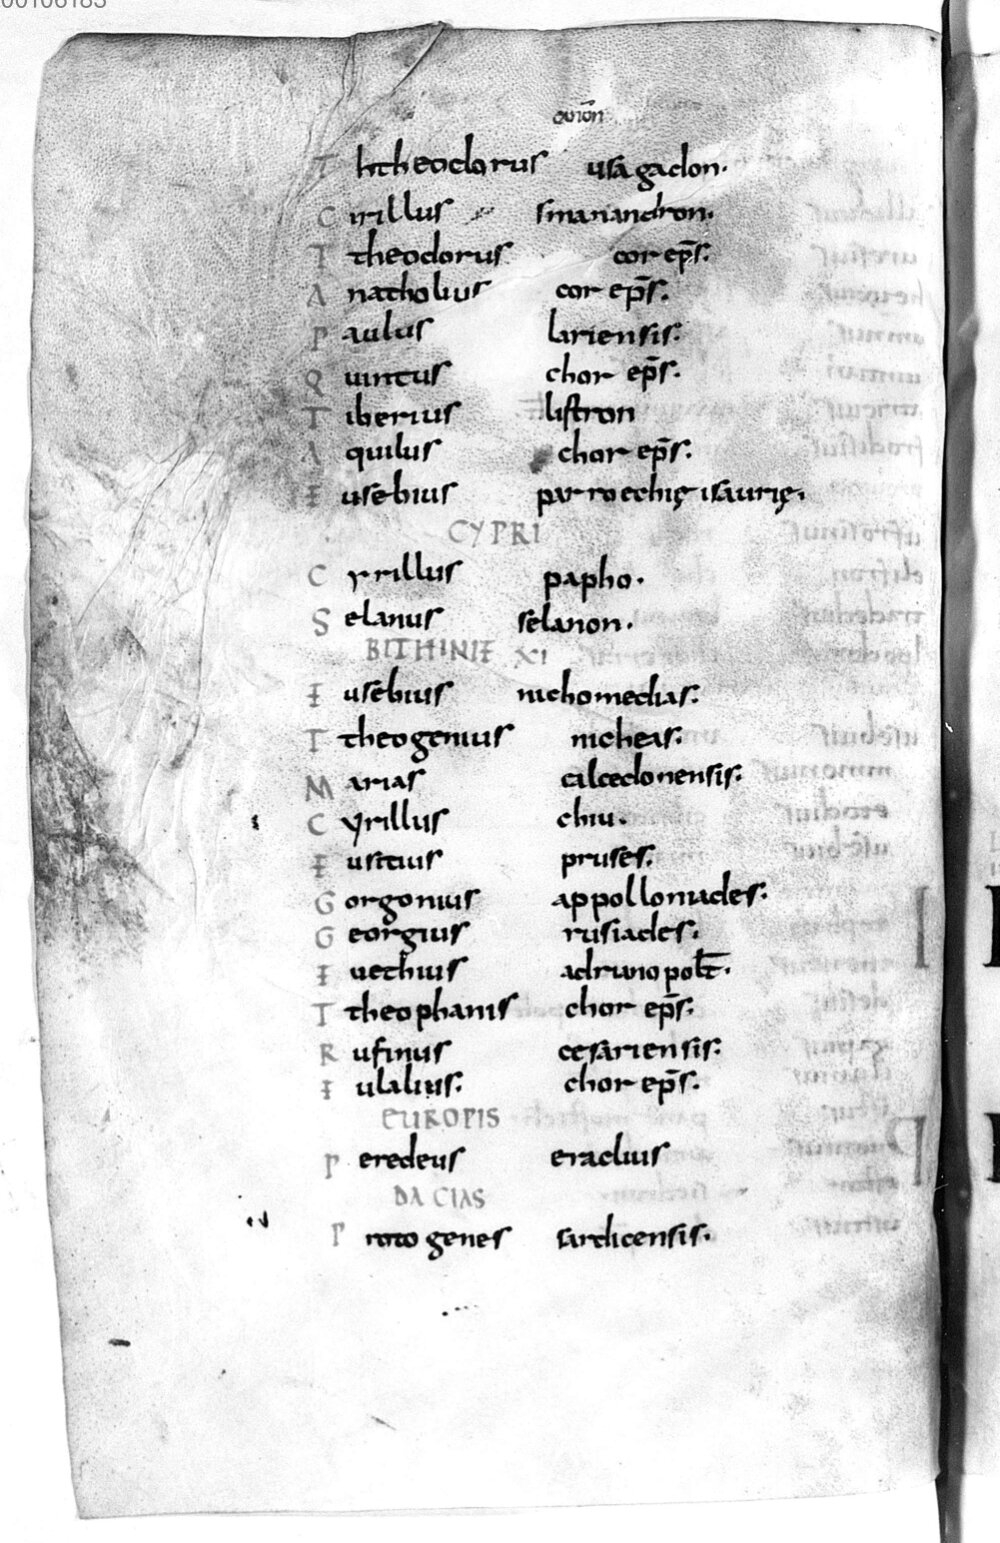 T htheodorus usagadon.
C irillus smanandron.
T theodorus cor ep̄s:
A natholius cor ep̄s.
P aulus lariensis:
Q uintus chor ep̄s.
T iberius listron
A quilus chor ep̄s.
E usebius parroechię isaurię.
CYPRI
C yrillus papho.
S elanus selanon.
BITHINIE XI
E usebius nichomedias:
T theogenius nicheas:
M arias calcedonensis:
C yrillus chiu.
E usitius pruses.
G orgonius appolloniades:
G eorgius rusiades.
E uethius
T theophanis chor ep̄s:
R ufinus cesariensis:
E ulalius: chor ep̄s:
EUROPIS
P eredeus eraclius
DACIAS
P rotogenes sardicensis.